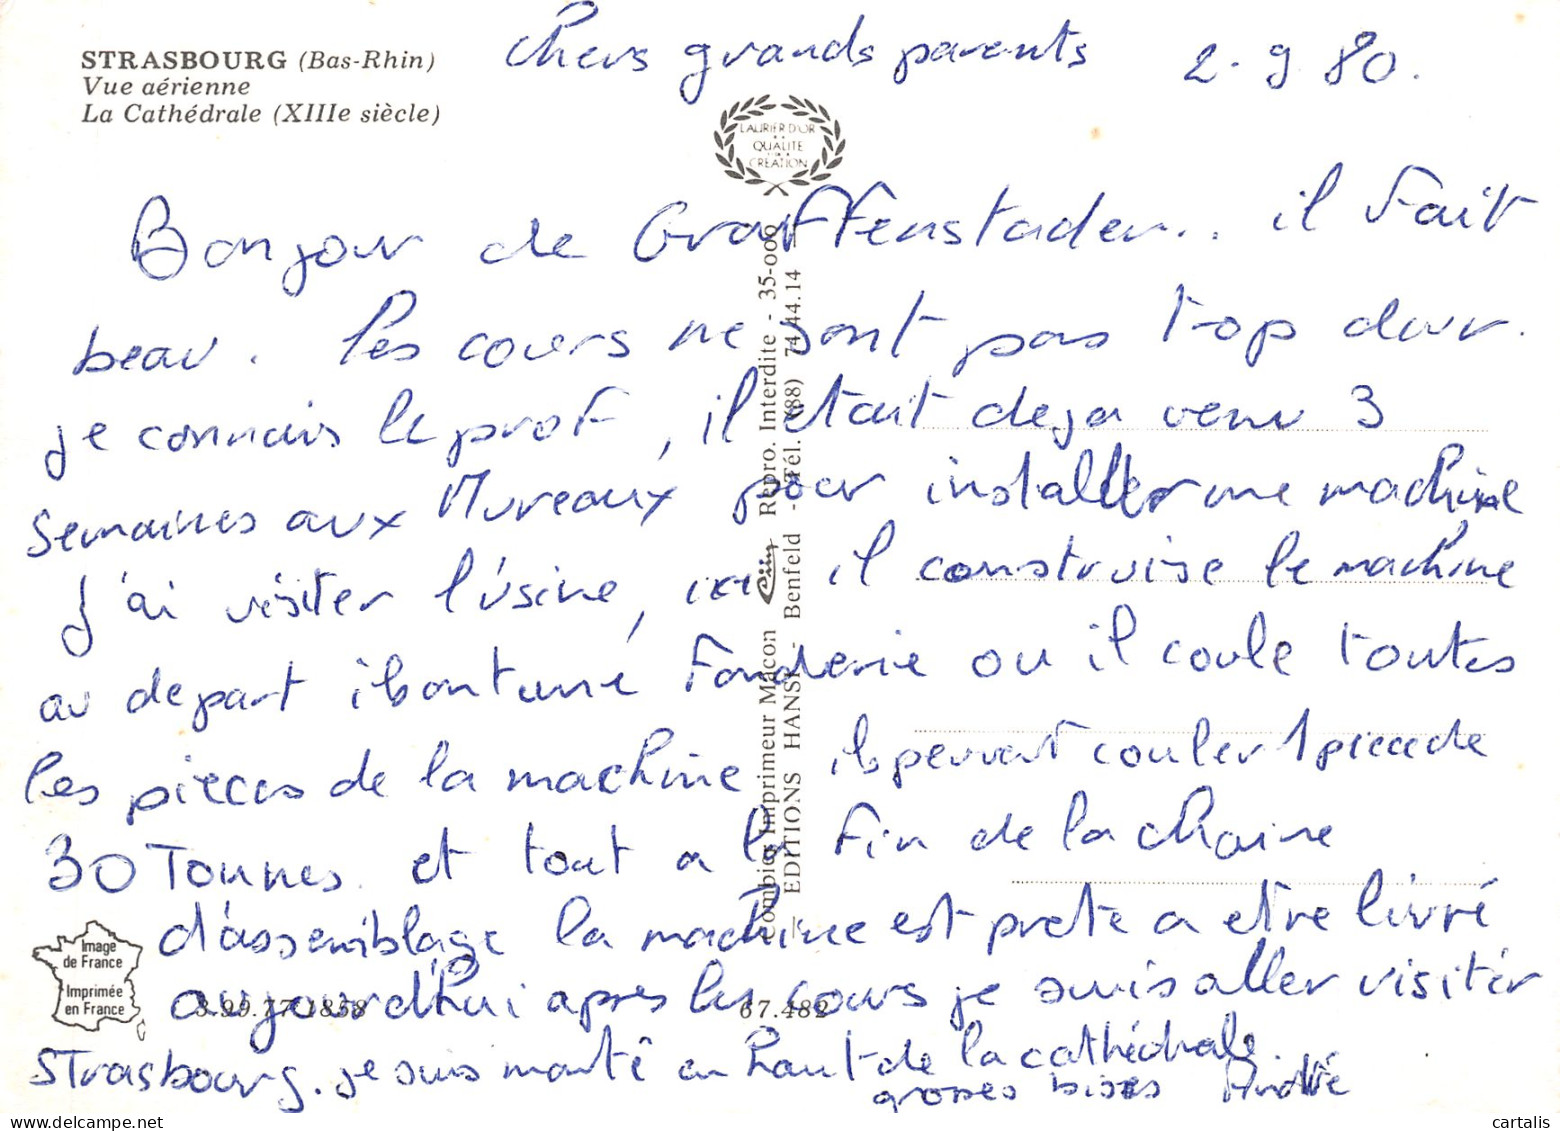 STRASBOURG (Bas-Rhin)
Vue aérienne
La Cathédrale (XIIIe siècle)
Chers grands parents 2.9.80.
LAURIER D'OR
QUALITE
CREATION
Bonjour de Graffenstaden.. il fait
beau. les cours ne sont pas trop dur.
je connais le prof, il etait deja venu 3
semaines aux Mureaux pour installer une machine
J'ai visiter l'usine, ici il construise le machine
au depart ils ont une Fonderie ou il coule toutes
les pieces de la machine ils peuvent couler 1 piece de
30 Tonnes. et tout a la fin de la chaine
d'assemblage la machine est prete a etre livré
aujourd'hui après les cours je suis aller visiter
Strasbourg. je suis monté en haut de la cathédrale.
grosses bises André
Combier Imprimeur Macon Repro. Interdite - 35-000
EDITIONS HANSI - Benfeld - Tél. (88) 74.44.14
Image
de France
Imprimée
en France
3.99.77.1858
67.482
cartalis